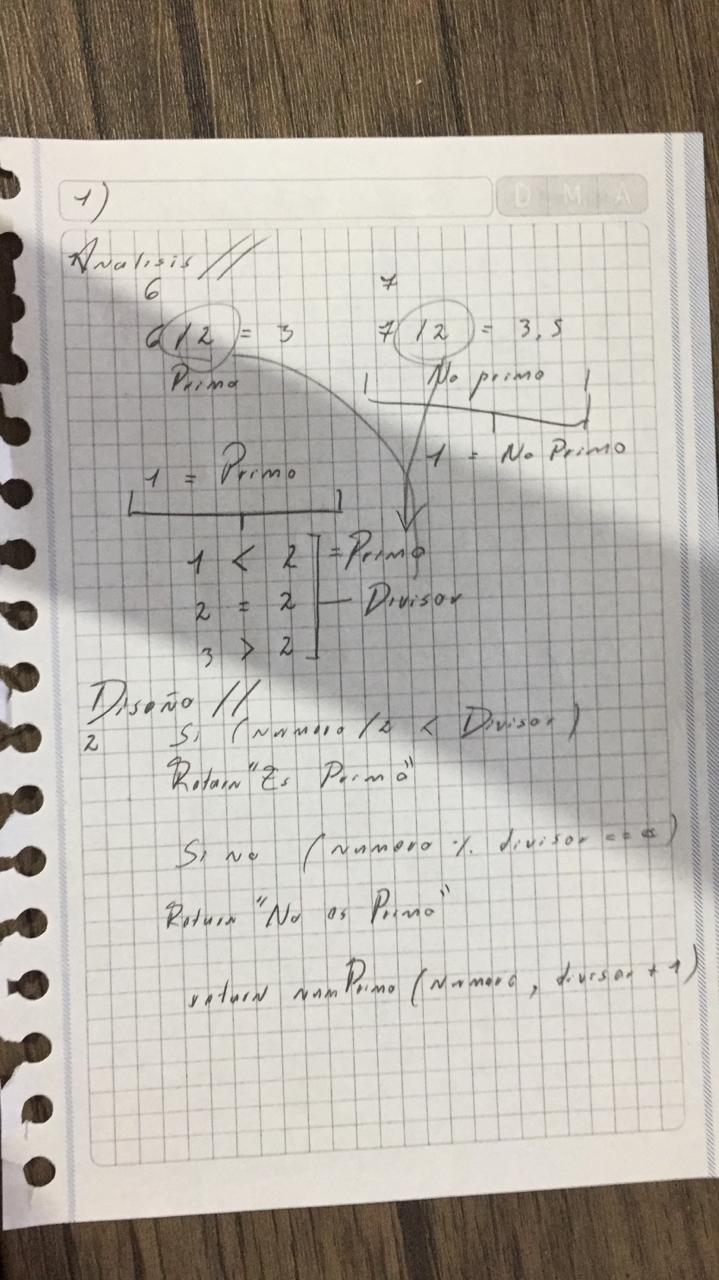 1)
D M A
Analisis //
6 7
6 /2 = 3 7 /2 = 3,5
Primo No primo
1 = No Primo
1 = Primo
1 < 2 = Primo
2 = 2 — Divisor
3 > 2
Diseño //
2 Si (numero /2 < Divisor)
Return "Es Primo"
Si no (numero % divisor ==
Return "No es Primo"
return numPrimo (numero, divisor + 1)